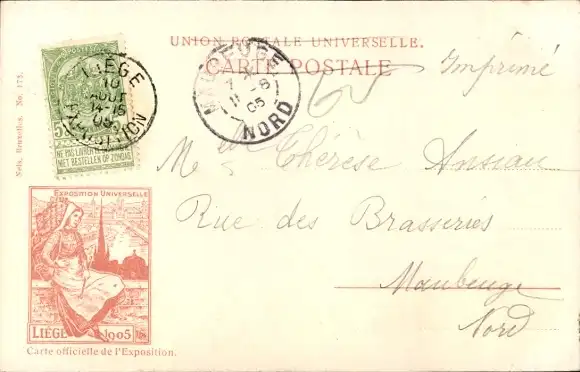 UNION POSTALE UNIVERSELLE.
CARTE POSTALE
Imprimé
LIÉGE
10
AOUT
14-15
05
EXPOSITION
NE PAS LIVRER LE DIMANCHE
NIET BESTELLEN OP ZONDAG
MAUBEUGE
7
11-8
05
NORD
Nels, Bruxelles. No. 175.
Melle Thérèse Ansiau
Rue des Brasseries
Maubeuge
Nord
EXPOSITION UNIVERSELLE
LIÉGE 1905
Carte officielle de l'Exposition.